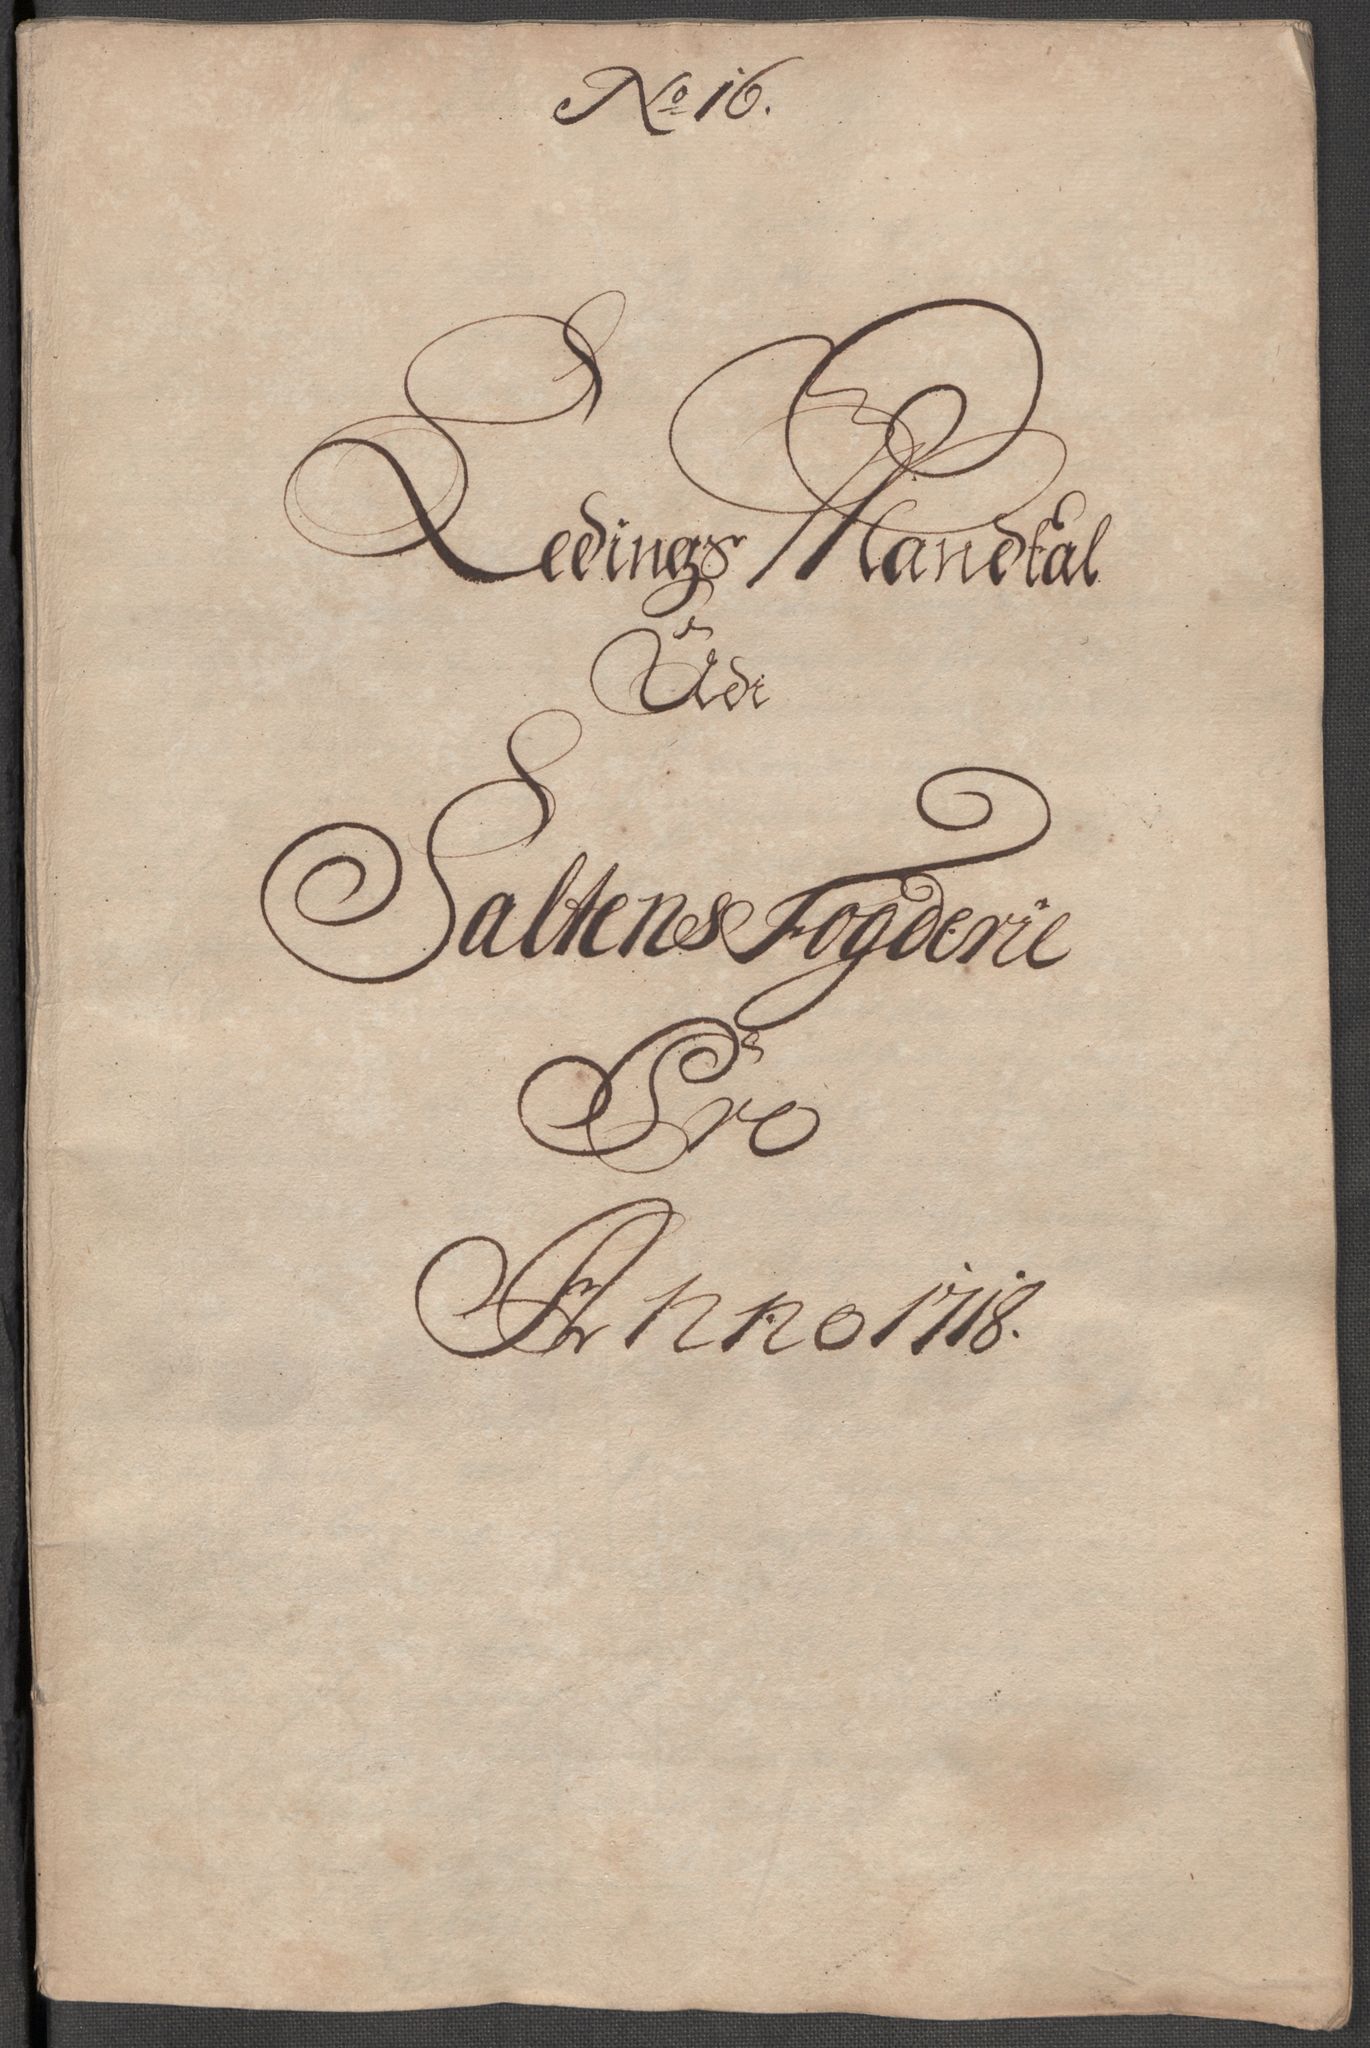 No 16.
Ledings Mandtal
Udi
Saltens Fogderie
Pro
Anno 1718.